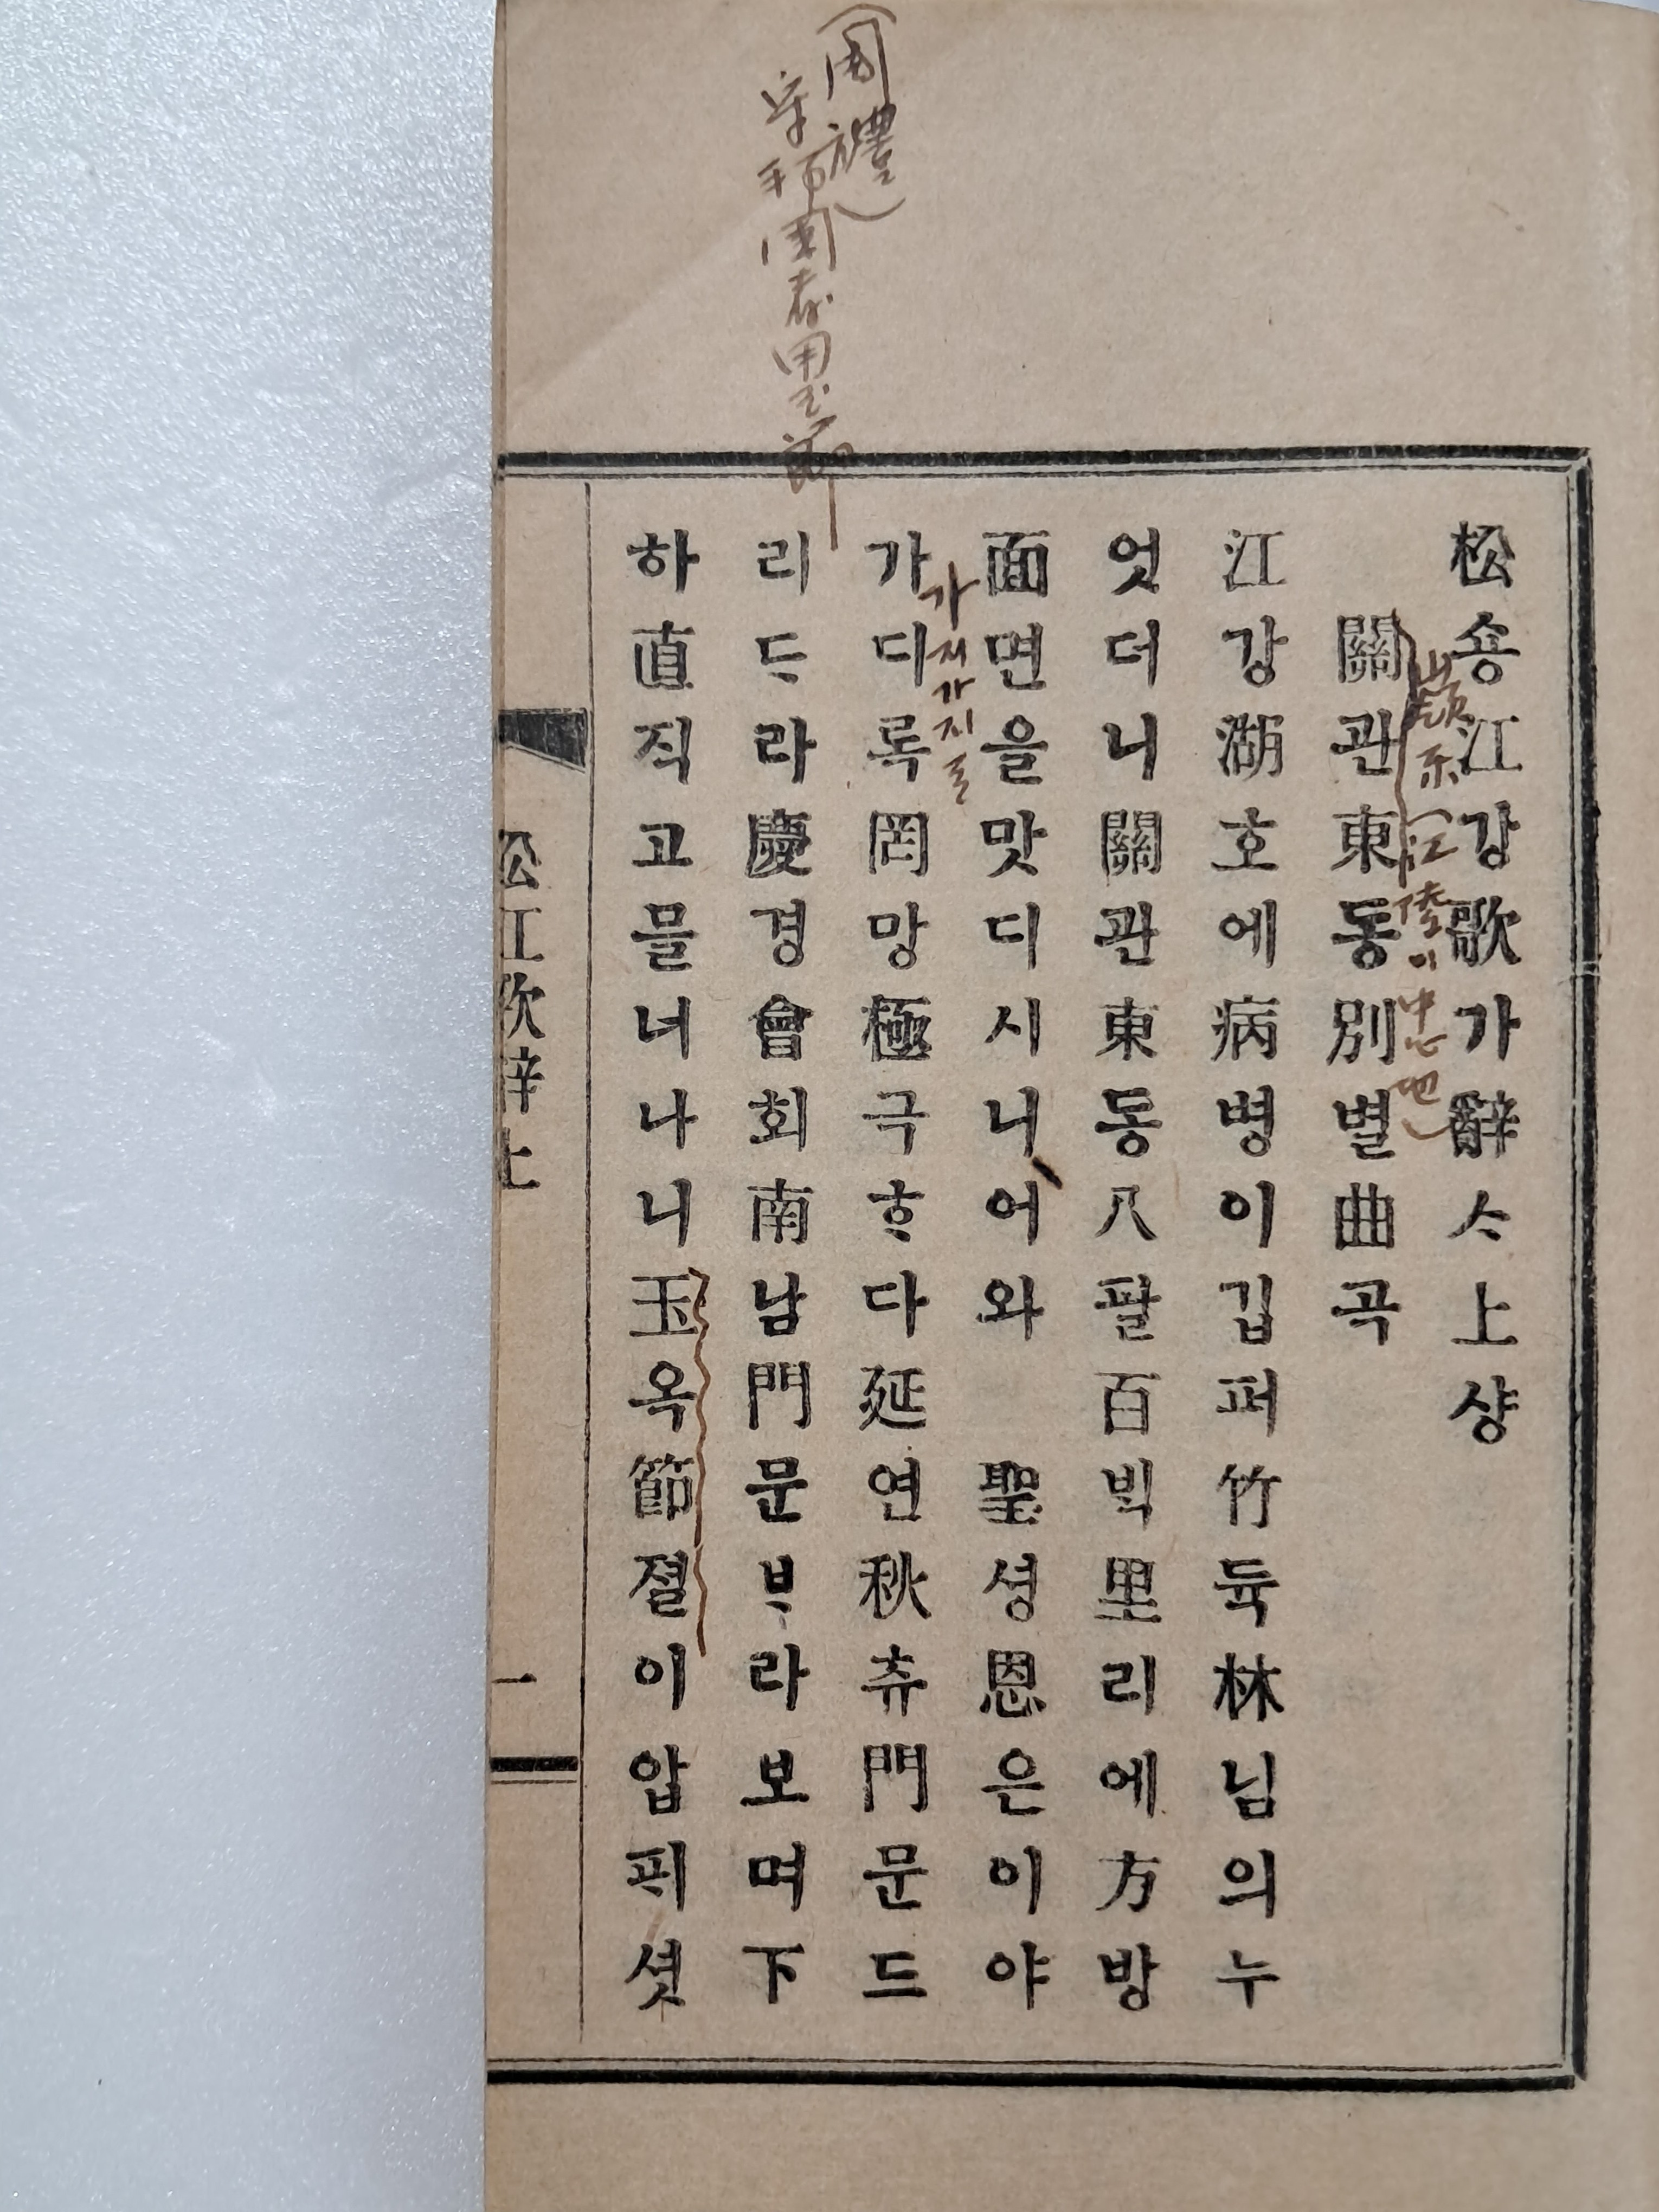 (周禮)
守邦國者用玉節
松숑江강歌가辭ᄉᆞ上샹
嶺東(江陵이 中心地)
關관東동別별曲곡
江강湖호에病병이깁퍼竹듁林님의누
엇더니關관東동八팔百ᄇᆡᆨ里리에方방
面면을맛디시니어와 聖셩恩은이야
가디록罔망極극ᄒᆞ다延연秋츄門문드
리ᄃᆞ라慶경會회南남門문ᄇᆞ라보며下
하直직고믈너나니玉옥節졀이압ᄑᆡ셧
松江歌辭上 一